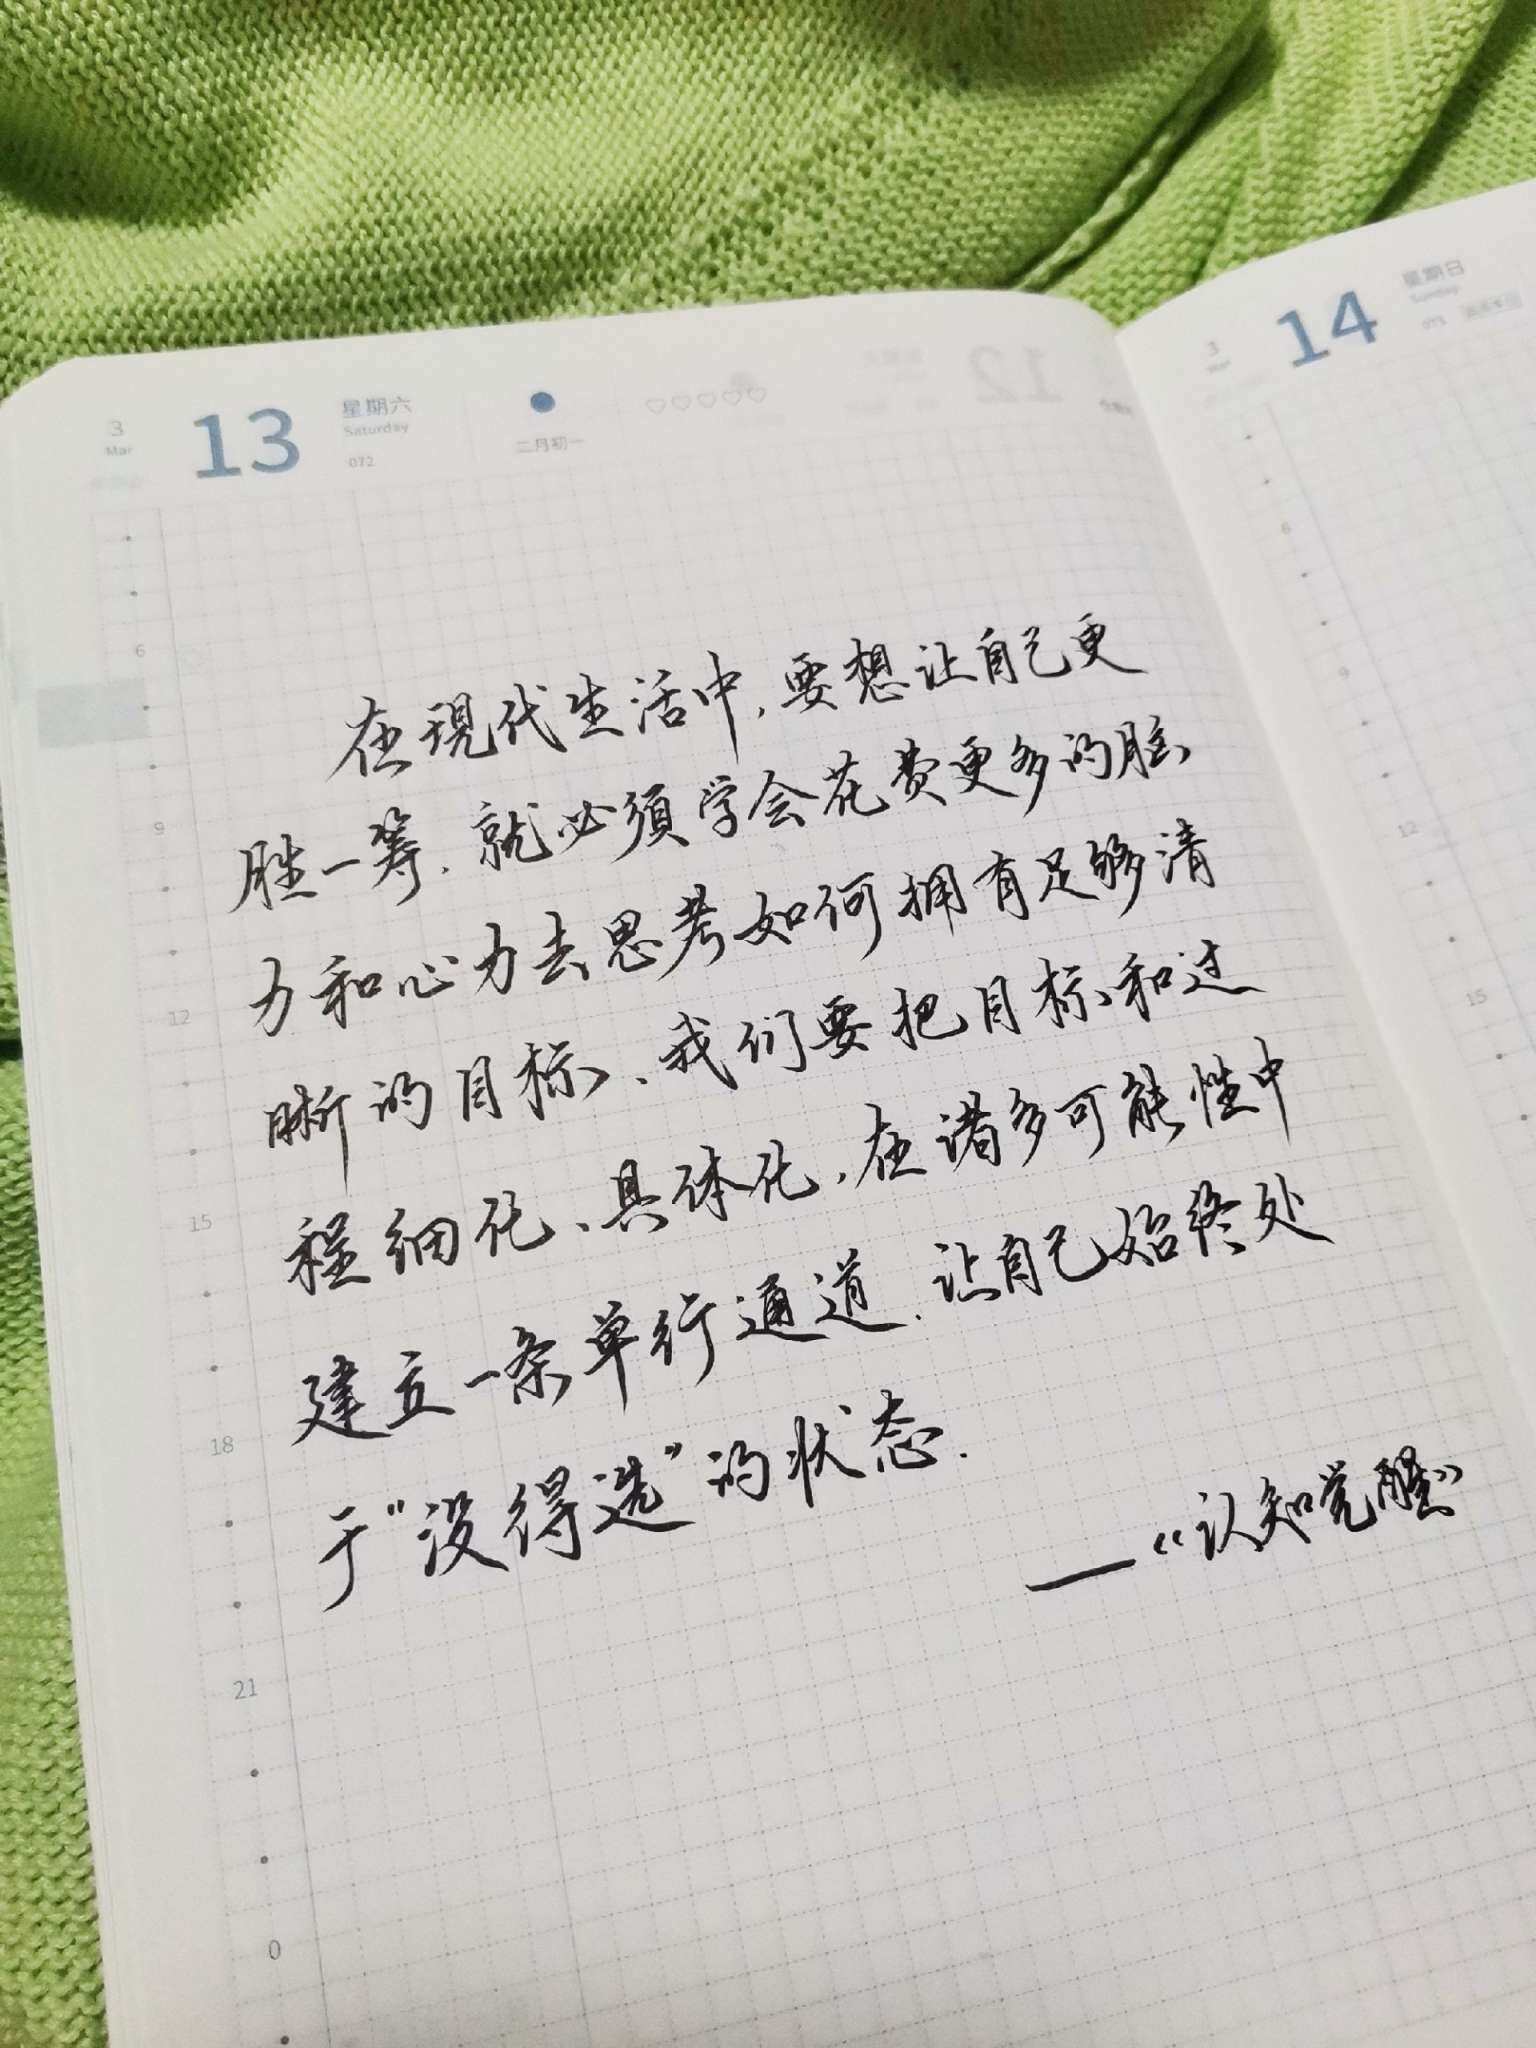 3
Mar
13
星期六
Saturday
072
二月初一
3
14
星期日
Sunday
073
12
在现代生活中,要想让自己更
胜一筹,就必须学会花费更多的脑
力和心力去思考如何拥有足够清
晰的目标、我们要把目标和过
程细化、具体化,在诸多可能性中
建立一条单行通道,让自己始终处
于“没得选”的状态.
——《认知觉醒》
6
9
12
15
18
21
0
6
9
12
15